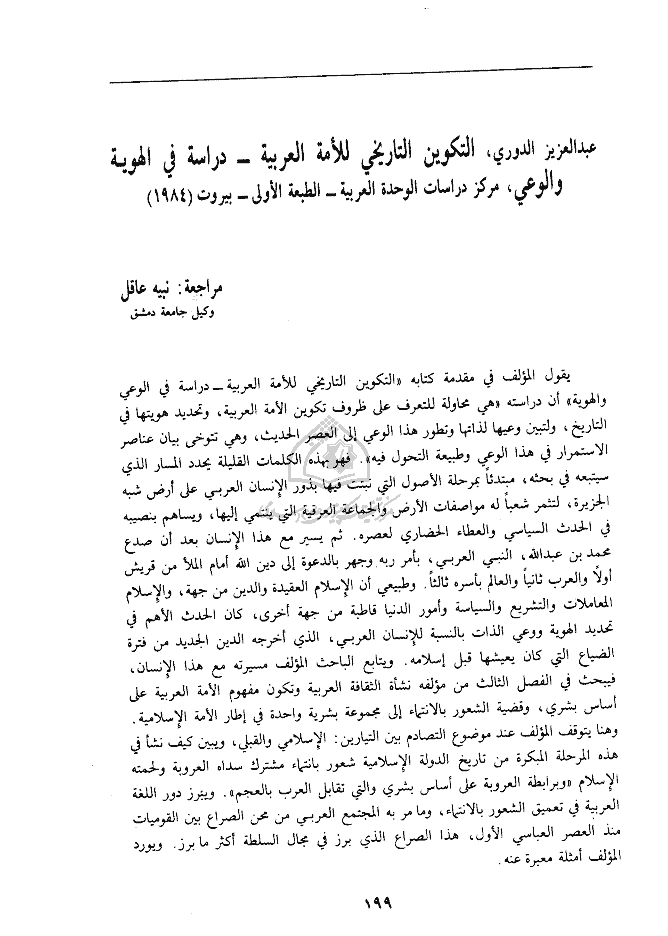 عبدالعزيز الدوري، التكوين التاريخي للأمة العربية ــ دراسة في الهوية
والوعي، مركز دراسات الوحدة العربية ــ الطبعة الأولى ــ بيروت (١٩٨٤)
مراجعة: نبيه عاقل
وكيل جامعة دمشق
يقول المؤلف في مقدمة كتابه «التكوين التاريخي للأمة العربية ــ دراسة في الوعي
والهوية» أن دراسته «هي محاولة للتعرف على ظروف تكوين الأمة العربية، وتحديد هويتها في
التاريخ، ولتبين وعيها لذاتها وتطور هذا الوعي إلى العصر الحديث، وهي تتوخى بيان عناصر
الاستمرار في هذا الوعي وطبيعة التحول فيه». فهو بهذه الكلمات القليلة يحدد المسار الذي
سيتبعه في بحثه، مبتدئاً بمرحلة الأصول التي نبتت فيها بذور الإنسان العربي على أرض شبه
الجزيرة، لتثمر شعباً له مواصفات الأرض والجماعة العرقية التي ينتمي إليها، ويساهم بنصيبه
في الحدث السياسي والعطاء الحضاري لعصره. ثم يسير مع هذا الإنسان بعد أن صدع
محمد بن عبدالله، النبي العربي، بأمر ربه وجهر بالدعوة إلى دين الله أمام الملأ من قريش
أولاً والعرب ثانياً والعالم بأسره ثالثاً. وطبيعي أن الإسلام العقيدة والدين من جهة، والإسلام
المعاملات والتشريع والسياسة وأمور الدنيا قاطبة من جهة أخرى، كان الحدث الأهم في
تحديد الهوية ووعي الذات بالنسبة للإنسان العربي، الذي أخرجه الدين الجديد من فترة
الضياع التي كان يعيشها قبل إسلامه. ويتابع الباحث المؤلف مسيرته مع هذا الإنسان،
فيبحث في الفصل الثالث من مؤلفه نشأة الثقافة العربية وتكون مفهوم الأمة العربية على
أساس بشري، وقضية الشعور بالانتماء إلى مجموعة بشرية واحدة في إطار الأمة الإسلامية.
وهنا يتوقف المؤلف عند موضوع التصادم بين التيارين: الإسلامي والقبلي، ويبين كيف نشأ في
هذه المرحلة المبكرة من تاريخ الدولة الإسلامية شعور بانتماء مشترك سداه العروبة ولحمته
الإسلام «وبرابطة العروبة على أساس بشري والتي تقابل العرب بالعجم». ويبرز دور اللغة
العربية في تعميق الشعور بالانتماء، وما مر به المجتمع العربي من محن الصراع بين القوميات
منذ العصر العباسي الأول، هذا الصراع الذي برز في مجال السلطة أكثر ما برز. ويورد
المؤلف أمثلة معبرة عنه.
١٩٩